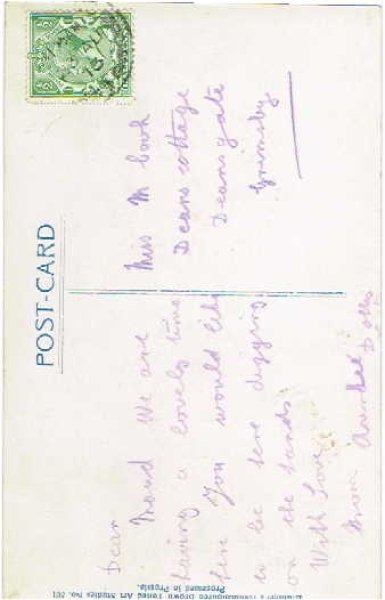 POST-CARD
Dear
Maud We are
having a lovely time
You would like
to be here digging
on the sands
With love
from
Miss M Cook
Deans cottage
Deansgate
Grimsby
Processed in Prussia.